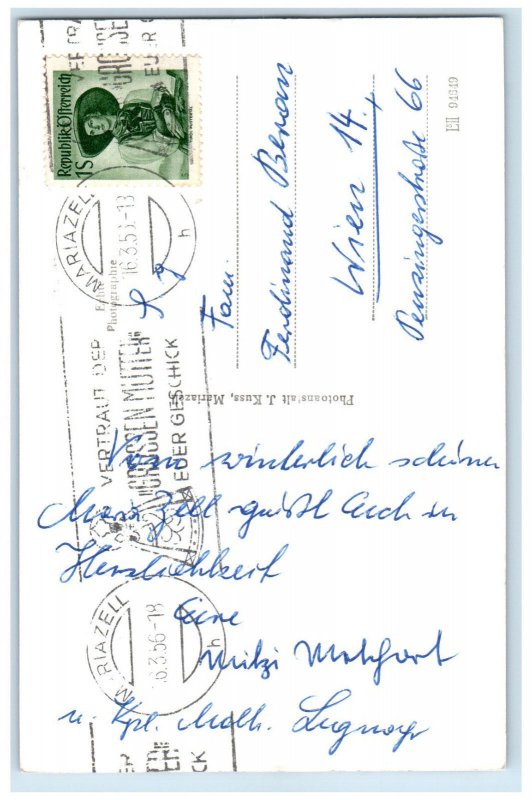 Republik Österreich
1S
MARIAZELL
16.3.56-18
h
VERTRAUT DER
„GROSSEN MUTTER"
EUER GESCHICK
MARIAZELL
6.3.56-18
h
Echte
Photographie
S g
Fam.
Ferdinand Beran
Wien 14.,
Penzingerstraße 66
EH 94649
Photoanstalt J. Kuss, Mariazell
Vom winterlich schönen
Mariazell grüßt Euch in
Herzlichkeit
Eure
Mitzi
u. Kpl.